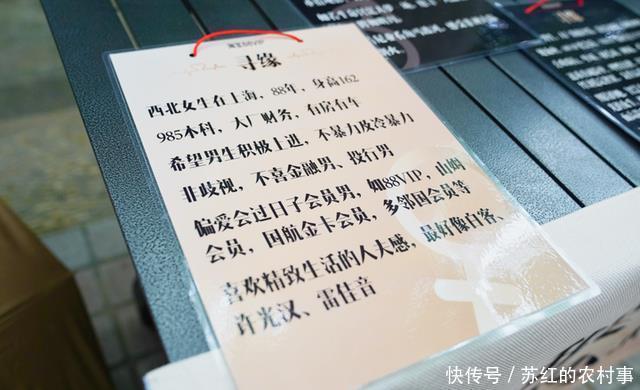 寻缘
西北女生在上海，88年，身高162
985本科，大厂财务，有房有车
希望男生积极上进，不暴力及冷暴力
非歧视，不喜金融男、投行男
偏爱会过日子会员男，如88VIP，山姆
会员，国航金卡会员，多邻国会员等
喜欢精致生活的人夫感，最好像白客、
许光汉、雷佳音
快传号／苏红的农村事